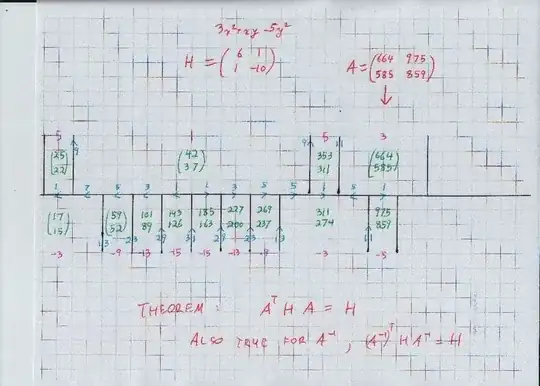 3x²+xy-5y²
H = ( 6 1 A = ( 664 975
1 -10 ) 585 859 )
5 1 5 3
( 25 22 ) 9 ( 42 37 ) 9 353 311 11 ( 664 585 )
1 7 5 3 1 1 3 5 5 1 1
( 17 15 ) ( 59 52 ) 101 89 143 126 185 163 227 200 269 237 311 274 975 859
13 23 29 31 29 23 13 11
-3 -9 -13 -15 -15 -13 -9 -3 -5
THEOREM: Aᵀ H A = H
ALSO TRUE FOR A⁻¹, (A⁻¹)ᵀ H A⁻¹ = H